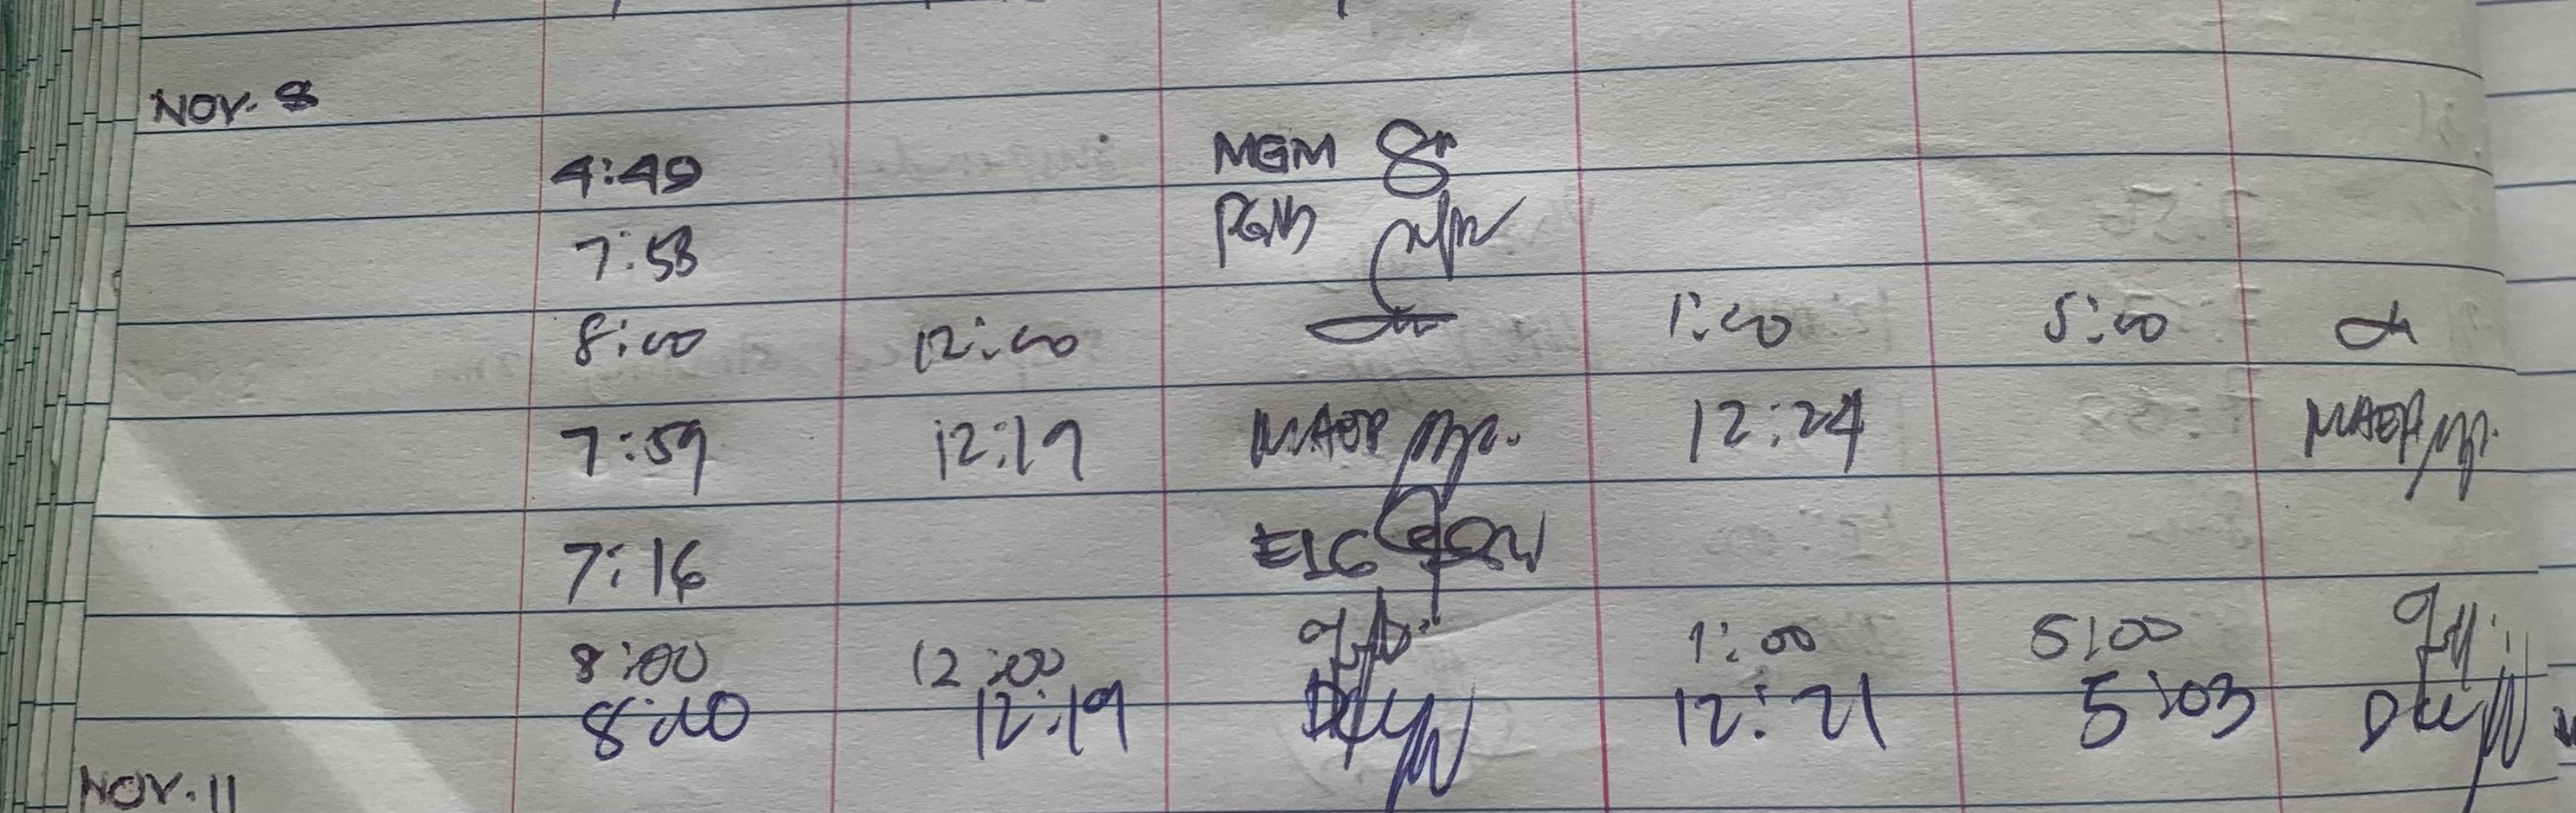 NOV. 8
4:49 MGM
7:58 PGM
8:00 12:00 1:00 5:00
7:59 12:19 MAOP 12:24 MAOP
7:16 EIG
8:00 12:00 1:00 5:00
8:00 12:19 12:21 5:03
NOV. 11